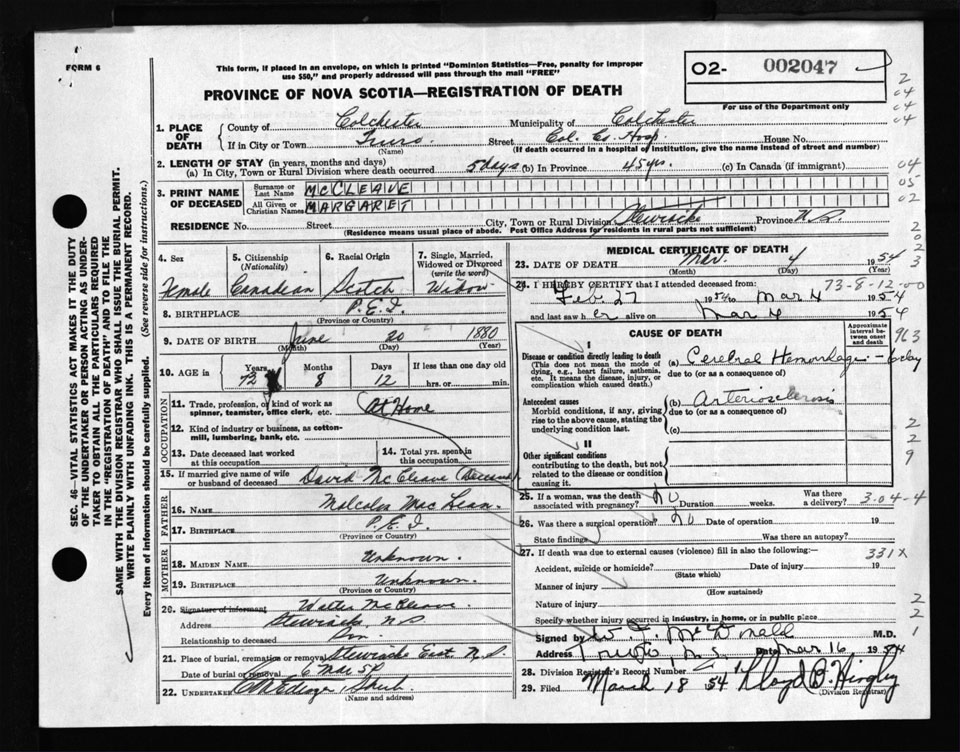 FORM 6
This form, if placed in an envelope, on which is printed "Dominion Statistics—Free, penalty for improper
use $50," and properly addressed will pass through the mail "FREE"
PROVINCE OF NOVA SCOTIA—REGISTRATION OF DEATH
O2- 002047
For use of the Department only
2
04
04
04
1. PLACE OF DEATH
County of Colchester Municipality of Colchester
If in City or Town Truro Street Col. Co. Hosp. House No.
(Name) (If death occurred in a hospital of institution, give the name instead of street and number)
2. LENGTH OF STAY (in years, months and days)
(a) In City, Town or Rural Division where death occurred 5 days (b) In Province 45 yrs. (c) In Canada (if immigrant)
04
05
02
3. PRINT NAME OF DECEASED
Surname or Last Name MCCLEAVE
All Given or Christian Names MARGARET
RESIDENCE No. Street City, Town or Rural Division Stewiacke Province N.S.
(Residence means usual place of abode. Post Office Address for residents in rural parts not sufficient)
2
0
2
3
SEC. 46—VITAL STATISTICS ACT MAKES IT THE DUTY
OF THE UNDERTAKER OR PERSON ACTING AS UNDER-
TAKER TO OBTAIN ALL THE PARTICULARS REQUIRED
IN THE "REGISTRATION OF DEATH" AND TO FILE THE
SAME WITH THE DIVISION REGISTRAR WHO SHALL ISSUE THE BURIAL PERMIT.
WRITE PLAINLY WITH UNFADING INK. THIS IS A PERMANENT RECORD.
Every item of information should be carefully supplied. (See reverse side for instructions.)
4. Sex Female
5. Citizenship (Nationality) Canadian
6. Racial Origin Scotch
7. Single, Married, Widowed or Divorced (write the word) Widow
8. BIRTHPLACE P.E.I.
(Province or Country)
9. DATE OF BIRTH June 20 1880
(Month) (Day) (Year)
10. AGE in Years 73 Months 8 Days 12 If less than one day old
hrs. or min.
OCCUPATION
11. Trade, profession, or kind of work as
spinner, teamster, office clerk, etc. At Home
12. Kind of industry or business, as cotton-
mill, lumbering, bank, etc.
13. Date deceased last worked
at this occupation
14. Total yrs. spent in
this occupation
15. If married give name of wife
or husband of deceased David McCleave (Deceased)
FATHER
16. Name Malcolm MacLean
17. Birthplace P.E.I.
(Province or Country)
MOTHER
18. Maiden Name Unknown.
19. Birthplace Unknown.
(Province or Country)
20. Signature of informant Walter McCleave
Address Stewiacke, N.S.
Relationship to deceased Son
21. Place of burial, cremation or removal Stewiacke East N.S.
Date of burial or removal 6 Mar 54
22. Undertaker
(Name and address)
MEDICAL CERTIFICATE OF DEATH
23. DATE OF DEATH Mar. 4 1954
(Month) (Day) (Year)
24. I HEREBY CERTIFY that I attended deceased from: 73-8-12-00
Feb. 27 1954 to Mar 4 1954
and last saw her alive on Mar 4 1954
CAUSE OF DEATH
Approximate interval between onset and death
963
I
Disease or condition directly leading to death
(This does not mean the mode of
dying, e.g., heart failure, asthenia,
etc. It means the disease, injury, or
complication which caused death.)
(a) Cerebral Hemorrhage - 6 day
due to (or as a consequence of)
Antecedent causes
Morbid conditions, if any, giving
rise to the above cause, stating the
underlying condition last.
(b) Arteriosclerosis
due to (or as a consequence of)
(c)
II
Other significant conditions
contributing to the death, but not
related to the disease or condition
causing it.
2
2
9
25. If a woman, was the death
associated with pregnancy? No Duration weeks. Was there a delivery? 3-04-4
26. Was there a surgical operation? No Date of operation 19
State findings Was there an autopsy?
27. If death was due to external causes (violence) fill in also the following: 331X
Accident, suicide or homicide? Date of injury 19
(State which)
Manner of injury
(How sustained)
Nature of injury
Specify whether injury occurred in industry, in home, or in public place
2
2
1
Signed by McDonald M.D.
Address Truro N.S. Date Mar 16, 1954
28. Division Registrar's Record Number
29. Filed March 18 54 Lloyd B. Hingley
(Division Registrar)